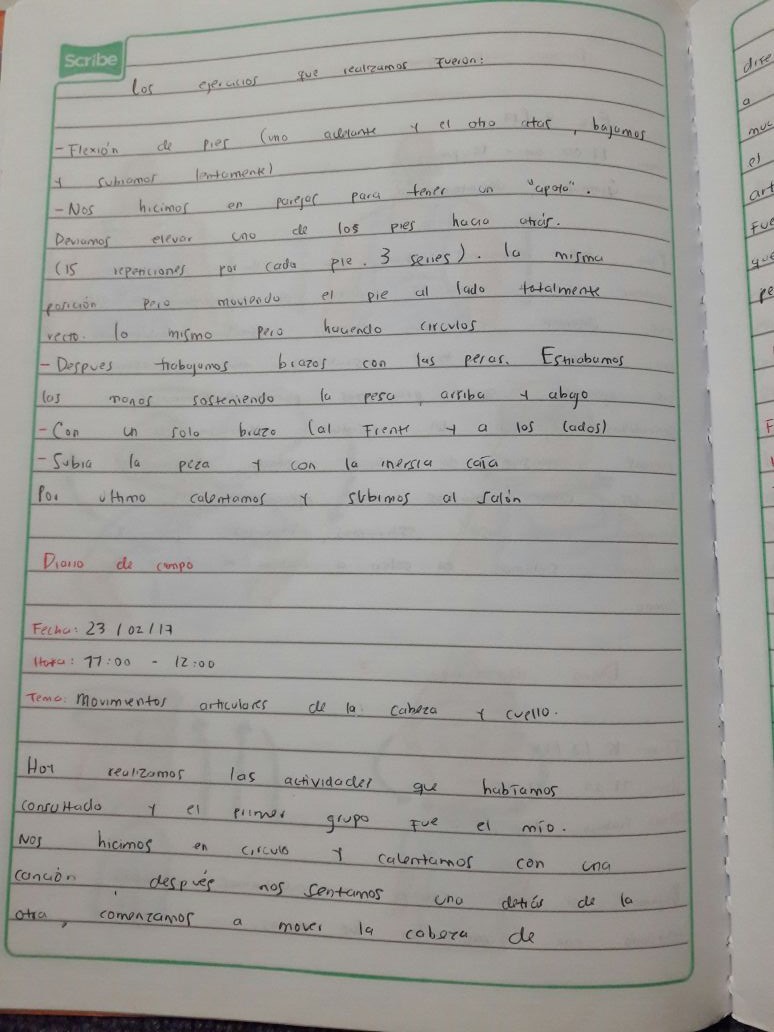 Scribe
los ejercicios que realizamos fueron:
- Flexión de pies (uno adelante y el otro atras, bajamos
y subiamos lentamente)
- Nos hicimos en parejas para tener un "apoyo".
Deviamos elevar uno de los pies hacia atrás.
(15 repeticiones por cada pie. 3 series). la misma
posición pero moviendo el pie al lado totalmente
recto. lo mismo pero haciendo circulos
- Despues trabajamos brazos con las pesas. Estirabamos
las manos sosteniendo la pesa, arriba y abajo
- Con un solo brazo (al frente y a los lados)
- Subia la peza y con la inersia caía
Por ultimo calentamos y subimos al salón
Diario de campo
Fecha: 23 / 02 / 17
Hora: 11:00 - 12:00
Tema: Movimientos articulares de la cabeza y cuello.
Hoy realizamos las actividades que habíamos
consultado y el primer grupo fue el mío.
Nos hicimos en circulo y calentamos con una
canción, después nos sentamos una detrás de la
otra, comenzamos a mover la cabeza de
dife
a
muc
el
art
Fue
que
pe
F